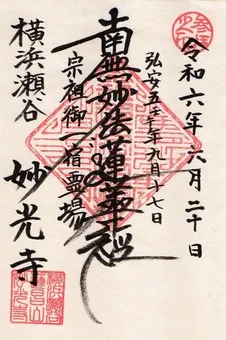 令和六年六月二十日
弘安五年九月十七日
南無妙法蓮華経
宗祖御一宿霊場
横浜瀬谷
妙光寺